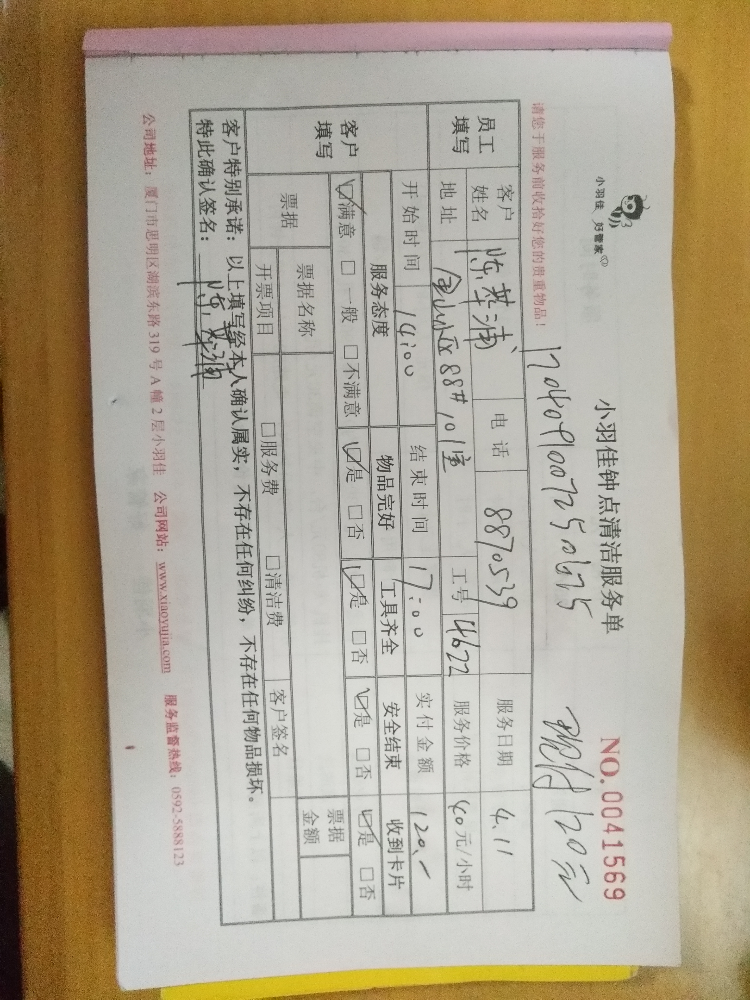 小羽佳 好管家
小羽佳钟点清洁服务单
NO.0041569
现付120元
请您于服务前收拾好您的贵重物品！
员工填写
客户姓名 电话 8870539 服务日期 4.11
地址 金山小区88#101室 工号 4622 服务价格 40元/小时
开始时间 14:00 结束时间 17:00 实付金额 120.-
客户填写
服务态度 物品完好 工具齐全 安全结束 收到卡片
☑满意 □一般 □不满意 ☑是 □否 ☑是 □否 ☑是 □否 ☑是 □否
票据 票据名称 票据金额
开票项目 □服务费 □清洁费 客户签名
客户特别承诺：以上填写经本人确认属实，不存在任何纠纷，不存在任何物品损坏。
特此确认签名：
公司地址：厦门市思明区湖滨东路319号A幢2层小羽佳 公司网站：www.xiaoyujia.com 服务监督热线：0592-5888123